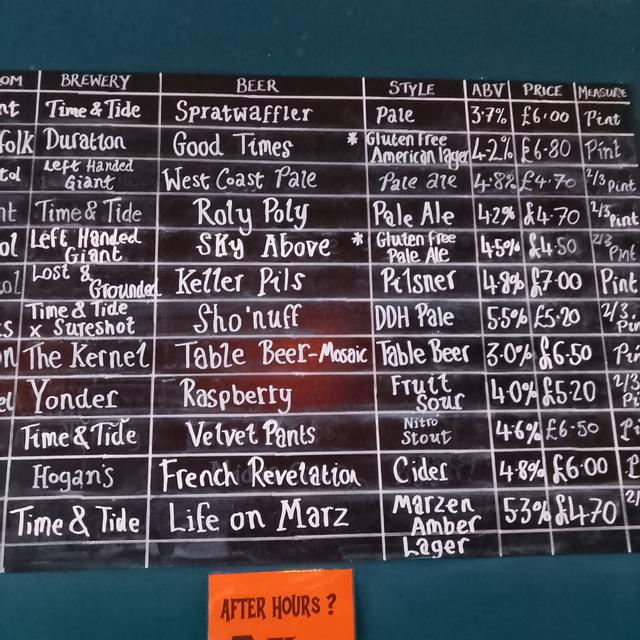 OM BREWERY BEER STYLE ABV PRICE MEASURE
nt Time & Tide Spratwaffler Pale 3.7% £6.00 Pint
folk Duration Good Times * Gluten Free American lager 4.2% £6.80 Pint
tol Left Handed Giant West Coast Pale Pale ale 4.8% £4.70 2/3 pint
nt Time & Tide Roly Poly Pale Ale 4.2% £4.70 2/3 pint
ol Left Handed Giant Sky Above * Gluten Free Pale Ale 4.5% £4.50 2/3 Pint
ol Lost & Grounded Keller Pils Pilsner 4.8% £7.00 Pint
s Time & Tide x Sureshot Sho'nuff DDH Pale 5.5% £5.20 2/3 Pi
n The Kernel Table Beer-Mosaic Table Beer 3.0% £6.50 Pi
el Yonder Raspberry Fruit Sour 4.0% £5.20 2/3 Pi
Time & Tide Velvet Pants Nitro Stout 4.6% £6.50 Pi
Hogan's French Revelation Cider 4.8% £6.00 P
Time & Tide Life on Marz Marzen Amber Lager 5.3% £4.70 2/
AFTER HOURS?